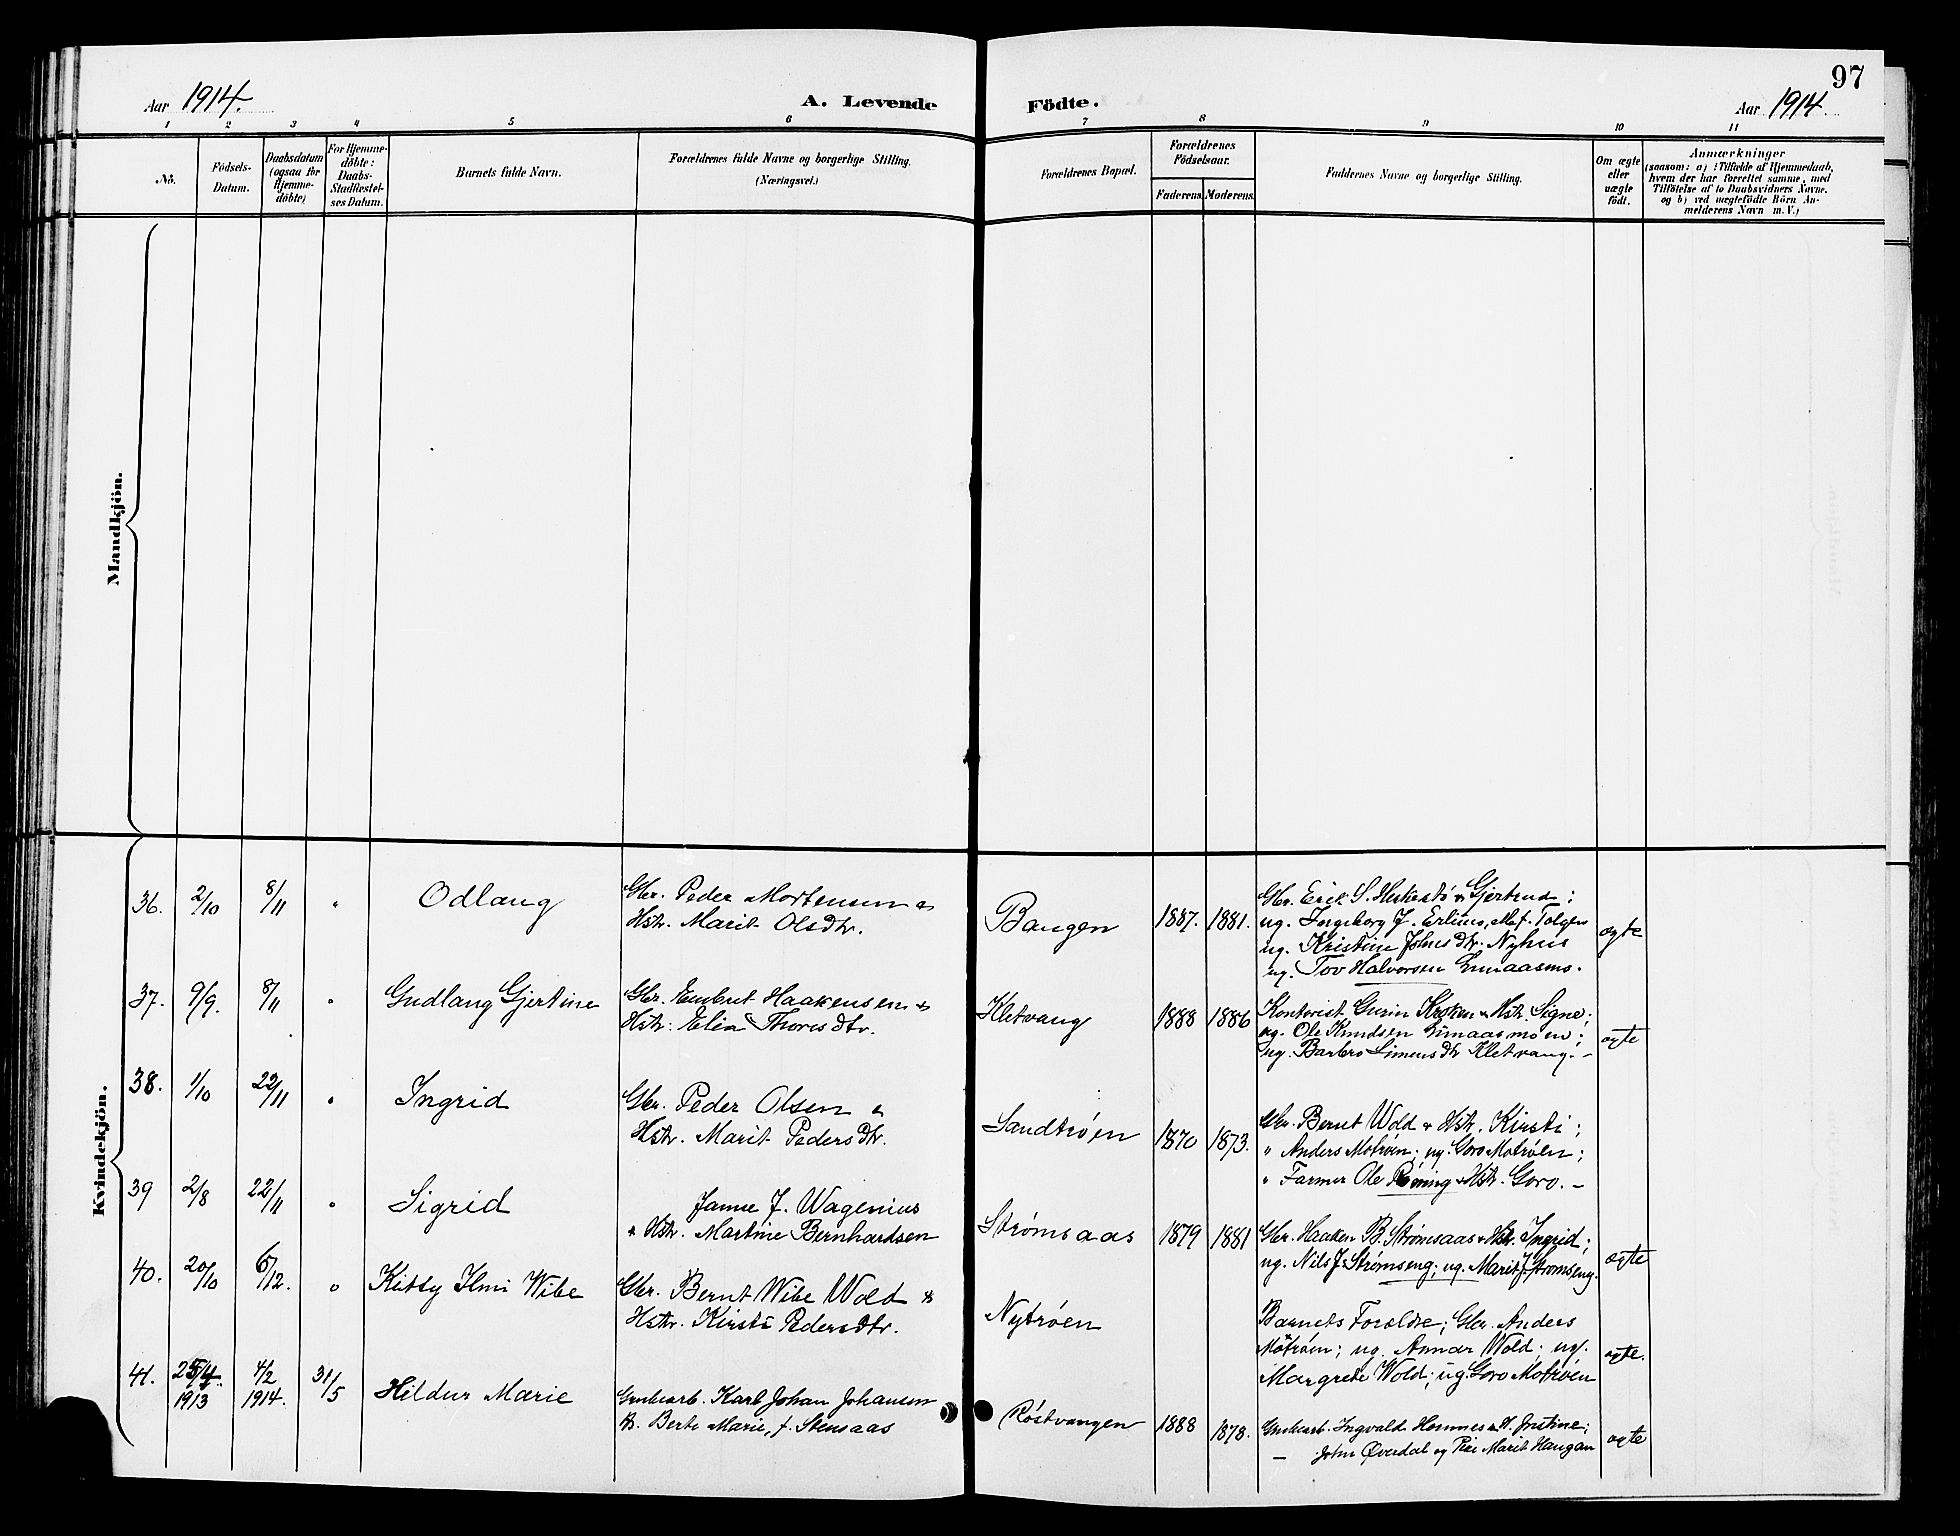 97
Aar 1914.
A. Levende Födte.
Aar 1914
1 2 3 4 5 6 7 8 9 10 11
No.
Födsels-
Datum.
Daabsdatum
(ogsaa for
Hjemme-
döbte)
For Hjemme-
döbte:
Daabs-
Stadfæstel-
ses Datum.
Barnets fulde Navn.
Forældrenes fulde Navne og borgerlige Stilling.
(Næringsvei.)
Forældrenes Bopæl.
Forældrenes
Födselsaar.
Faderens. Moderens.
Faddernes Navne og borgerlige Stilling.
Om ægte
eller
uægte
födt.
Anmærkninger
(saasom: a) i Tilfælde af Hjemmedaab,
hvem der har forrettet samme, med
Tilföielse af to Daabsvidners Navne.
og b) ved uægtefödte Börn An-
melderens Navn m. V.)
Mandkjön.
Kvindekjön.
36. 2/10 8/11 " Odlaug
Gbr. Peder Mortensen &
Hstr. Marit Olsdtr.
Bangen 1887. 1881.
Gbr. Erik S. & Gjertrud;
ug. Ingeborg J. Erlien, Tolgen
ug. Kristine Johnsdtr. Nyhus
ug. Tov Halvorsen
ægte
37. 9/9. 8/11 " Gudlaug Gjertine
Gbr. Embret Haakensen &
Hstr. Elin Thoresdtr.
Kletvang 1888 1886
Kontorist & Hstr. Signe;
ug. Ole Knudsen
ug. Barbro Simensdtr Kletvang. -
ægte
38. 1/10 22/11 " Ingrid
Gbr. Peder Olsen &
Hstr. Marit Pedersdtr.
Sandtrøen 1870 1873.
Gbr. Bernt Wold & Hstr. Kirsti;
" Anders Motrøen; ug. Goro Motrøen;
" Farmer Ole Røning & Hstr. Goro. -
39 2/8 22/11 " Sigrid
Janne J. Wagenius
& Hstr. Martine Bernhardsen
Strømsaas 1879 1881
Gbr. Haaken B. Strømsaas & Hstr. Ingrid;
ug. Nils J. Strømseng; ug. Marit J. Strømseng.
ægte
40. 20/10 6/12. " Kitty Ilmi Wibe
Gbr. Bernt Wibe Wold &
Hstr. Kirsti Pedersdtr.
Nytrøen
Barnets Forældre; Gbr. Anders
Motrøen; ug. Annar Wold; ug.
Margrete Wold; ug. Goro Motrøen
ægte.
41. 1913 4/2 1914. 31/5 Hildur Marie
Grubearb. Karl Johan Johansen
& Berte Marie, f. Stensaas
Røstvangen 1888 1878.
Grubearb. Ingvald Hommes & H. Justine;
— John Øverdal og Marit Haugan
ægte